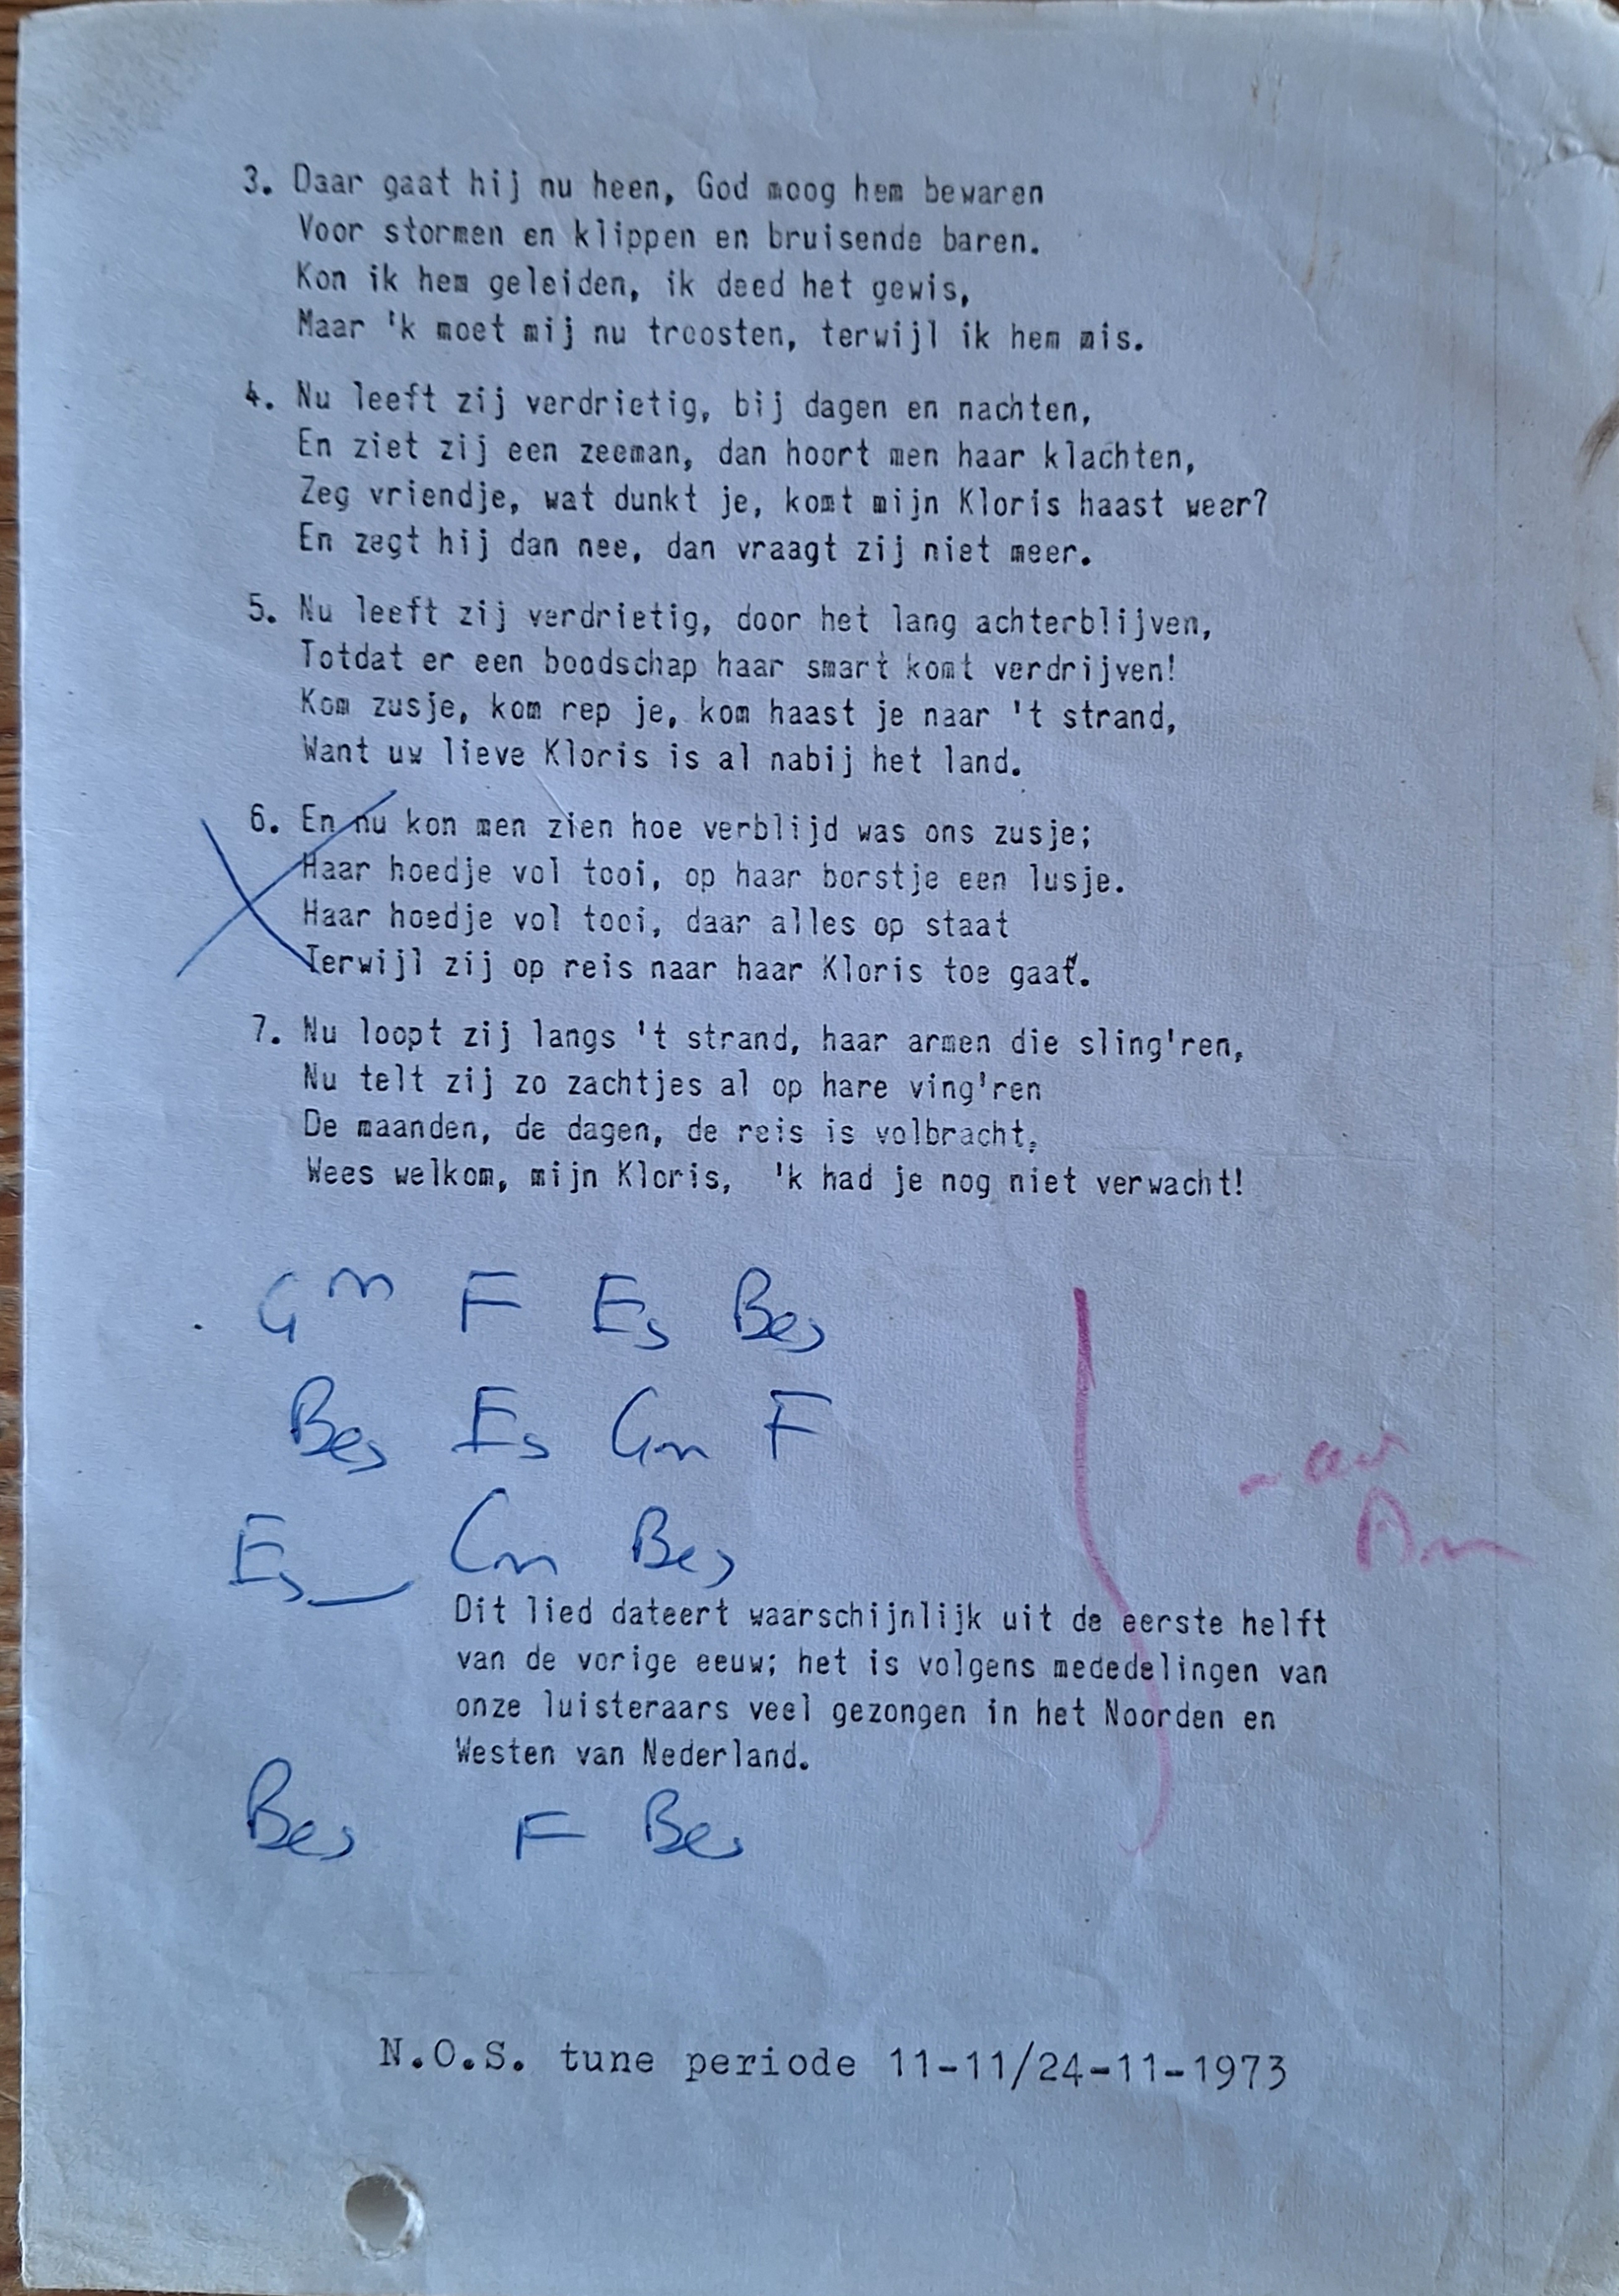 3. Daar gaat hij nu heen, God moog hem bewaren
Voor stormen en klippen en bruisende baren.
Kon ik hem geleiden, ik deed het gewis,
Maar 'k moet mij nu troosten, terwijl ik hem mis.
4. Nu leeft zij verdrietig, bij dagen en nachten,
En ziet zij een zeeman, dan hoort men haar klachten,
Zeg vriendje, wat dunkt je, komt mijn Kloris haast weer?
En zegt hij dan nee, dan vraagt zij niet meer.
5. Nu leeft zij verdrietig, door het lang achterblijven,
Totdat er een boodschap haar smart komt verdrijven!
Kom zusje, kom rep je, kom haast je naar 't strand,
Want uw lieve Kloris is al nabij het land.
6. En nu kon men zien hoe verblijd was ons zusje;
Haar hoedje vol tooi, op haar borstje een lusje.
Haar hoedje vol tooi, daar alles op staat
Terwijl zij op reis naar haar Kloris toe gaat.
7. Nu loopt zij langs 't strand, haar armen die sling'ren,
Nu telt zij zo zachtjes al op hare ving'ren
De maanden, de dagen, de reis is volbracht,
Wees welkom, mijn Kloris, 'k had je nog niet verwacht!
Gm F Es Bes
Bes Es Gm F
Am
Es Cm Bes
Dit lied dateert waarschijnlijk uit de eerste helft
van de vorige eeuw; het is volgens mededelingen van
onze luisteraars veel gezongen in het Noorden en
Westen van Nederland.
Bes F Bes
N.O.S. tune periode 11-11/24-11-1973